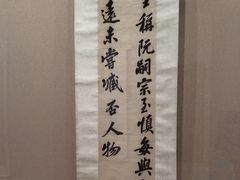 王稱阮嗣宗至慎每與
遠未嘗臧否人物